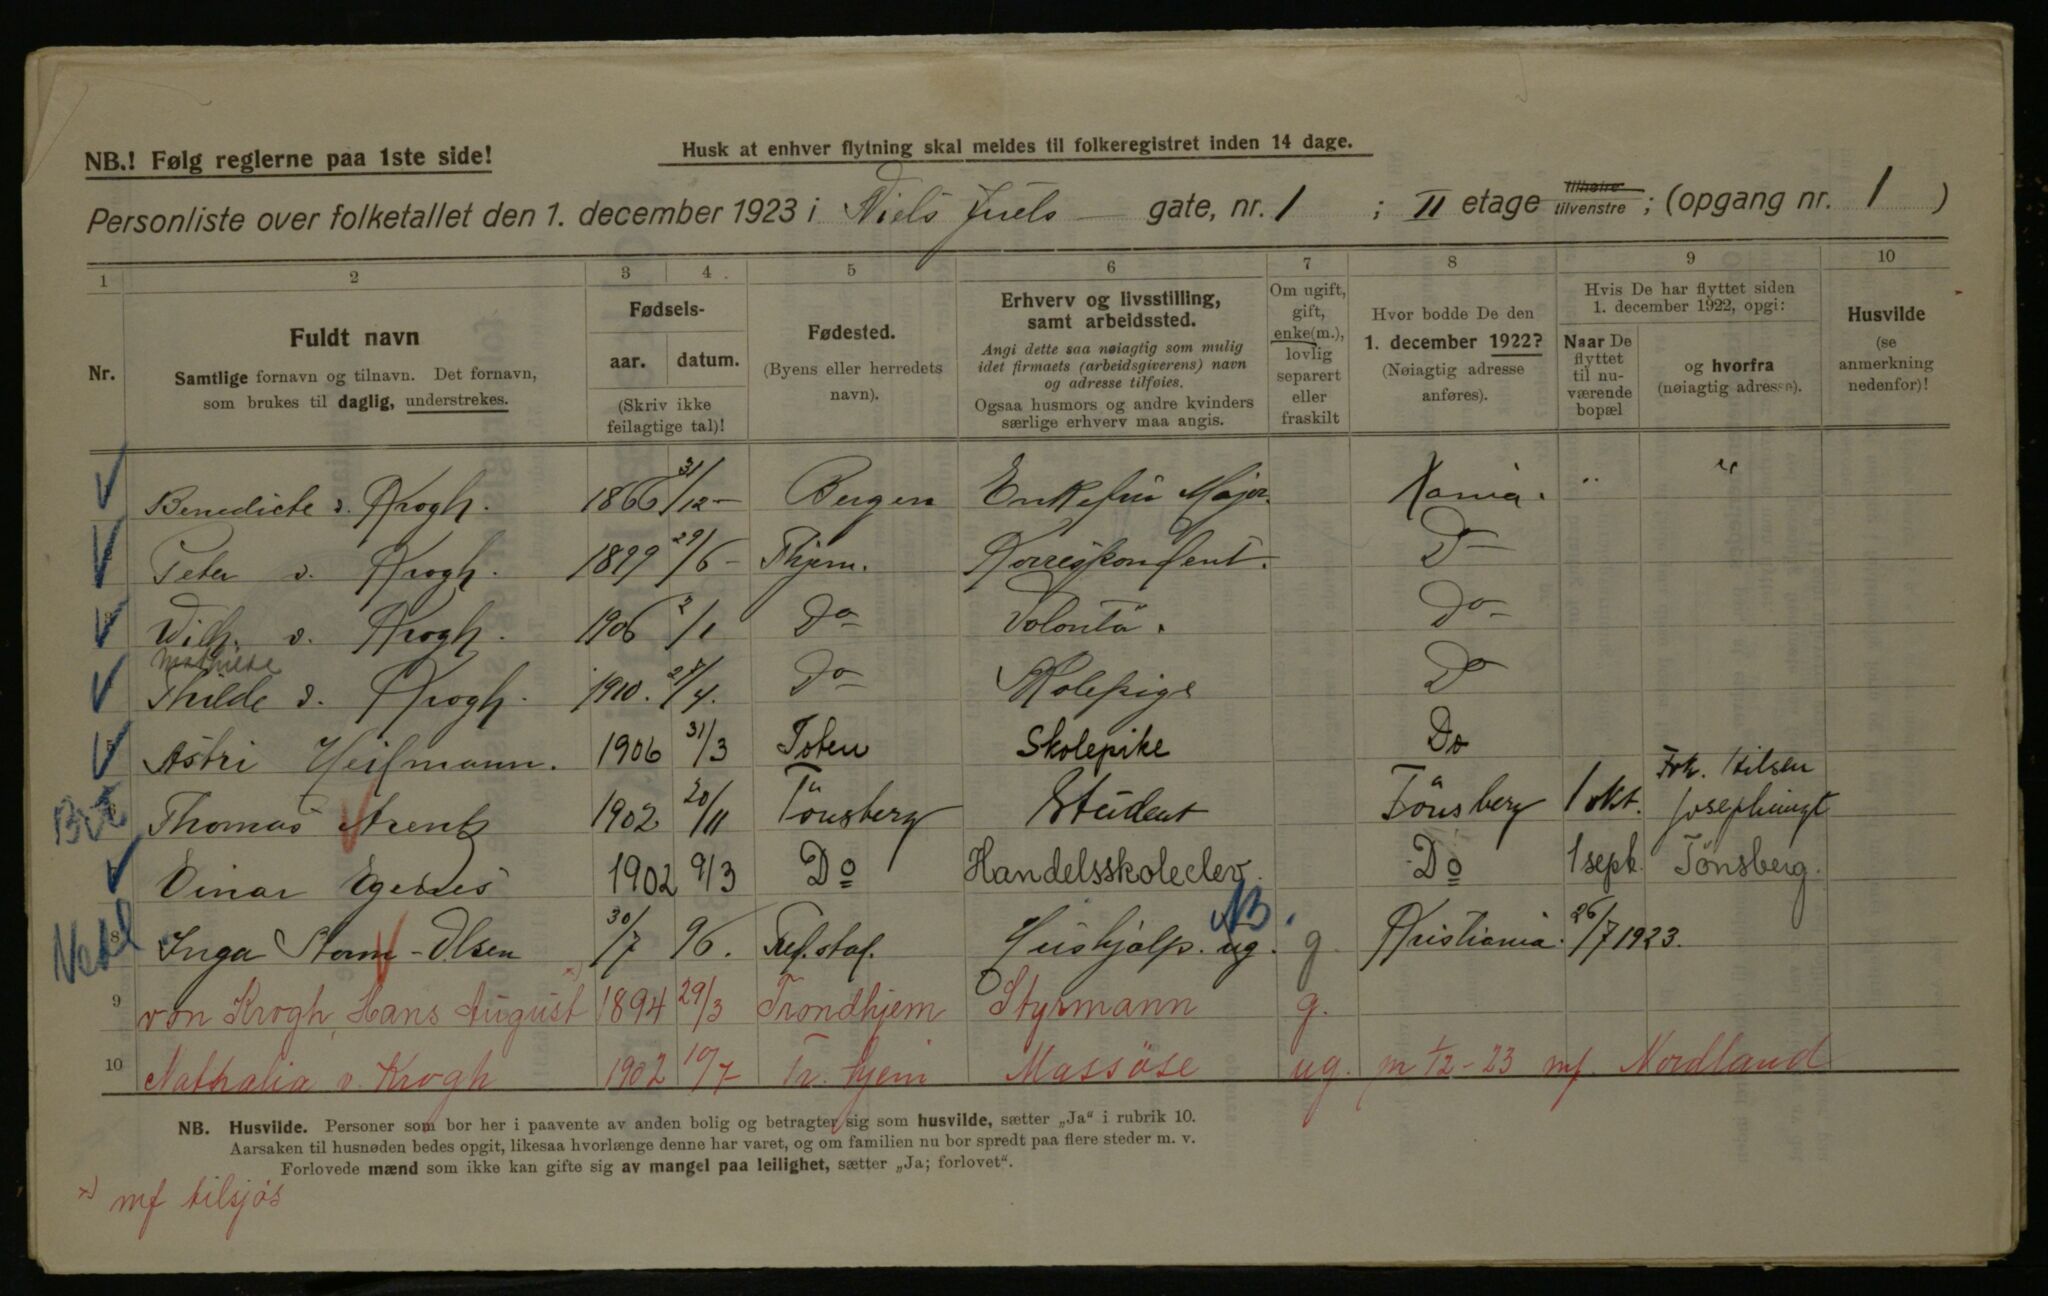 NB.! Følg reglerne paa 1ste side!
Husk at enhver flytning skal meldes til folkeregistret inden 14 dage.
Personliste over folketallet den 1. december 1923 i Niels Juels gate, nr. 1 ; II etage tilhøire tilvenstre ; (opgang nr. 1 )
1 2 3 4 5 6 7 8 9 10
Nr.
Fuldt navn
Samtlige fornavn og tilnavn. Det fornavn,
som brukes til daglig, understrekes.
Fødsels-
aar. datum.
(Skriv ikke
feilagtige tal)!
Fødested.
(Byens eller herredets
navn).
Erhverv og livsstilling,
samt arbeidssted.
Angi dette saa nøiagtig som mulig
idet firmaets (arbeidsgiverens) navn
og adresse tilføies.
Ogsaa husmors og andre kvinders
særlige erhverv maa angis.
Om ugift,
gift,
enke(m.),
lovlig
separert
eller
fraskilt
Hvor bodde De den
1. december 1922?
(Nøiagtig adresse
anføres).
Hvis De har flyttet siden
1. december 1922, opgi:
Naar De
flyttet
til nu-
værende
bopæl
og hvorfra
(nøiagtig adresse).
Husvilde
(se
anmerkning
nedenfor)!
Benedicte v. Krogh. 1866 31/12 - Bergen Enkefru Major. Kania. " "
Peter v. Krogh. 1899 29/6 - Thjem. Korrespondent. Do
Wilh. v. Krogh. 1906 2/1 Do Volontä. Do
Mathilde
Thilde v. Krogh. 1910. 27/4. Do Skolepige Do
Astri Heilmann. 1906 31/3 Toten Skolepike Do
Thomas Arentz 1902 20/11 Tönsberg Student Tönsberg 1 okt. Frk. Nilsen Josephinegt
Einar Egenes 1902 9/3 Do Handelsskoleelev. Do 1 sept. Tönsberg.
8 Inga Storm-Olsen 30/7 96. Hushjælp. ug. NB. g. Kristiania. 26/7 1923.
9 von Krogh, Hans August x) 1894 29/3 Trondhjem Styrmann g.
10 Nathalia v. Krogh 1902 10/7 Tr.hjem Massöse ug. m 1/12-23 mf. Nordland
NB. Husvilde. Personer som bor her i paavente av anden bolig og betragter sig som husvilde, sætter „Ja“ i rubrik 10.
Aarsaken til husnøden bedes opgit, likesaa hvorlænge denne har varet, og om familien nu bor spredt paa flere steder m. v.
Forlovede mænd som ikke kan gifte sig av mangel paa leilighet, sætter „Ja; forlovet“.
x) mf tilsjøs